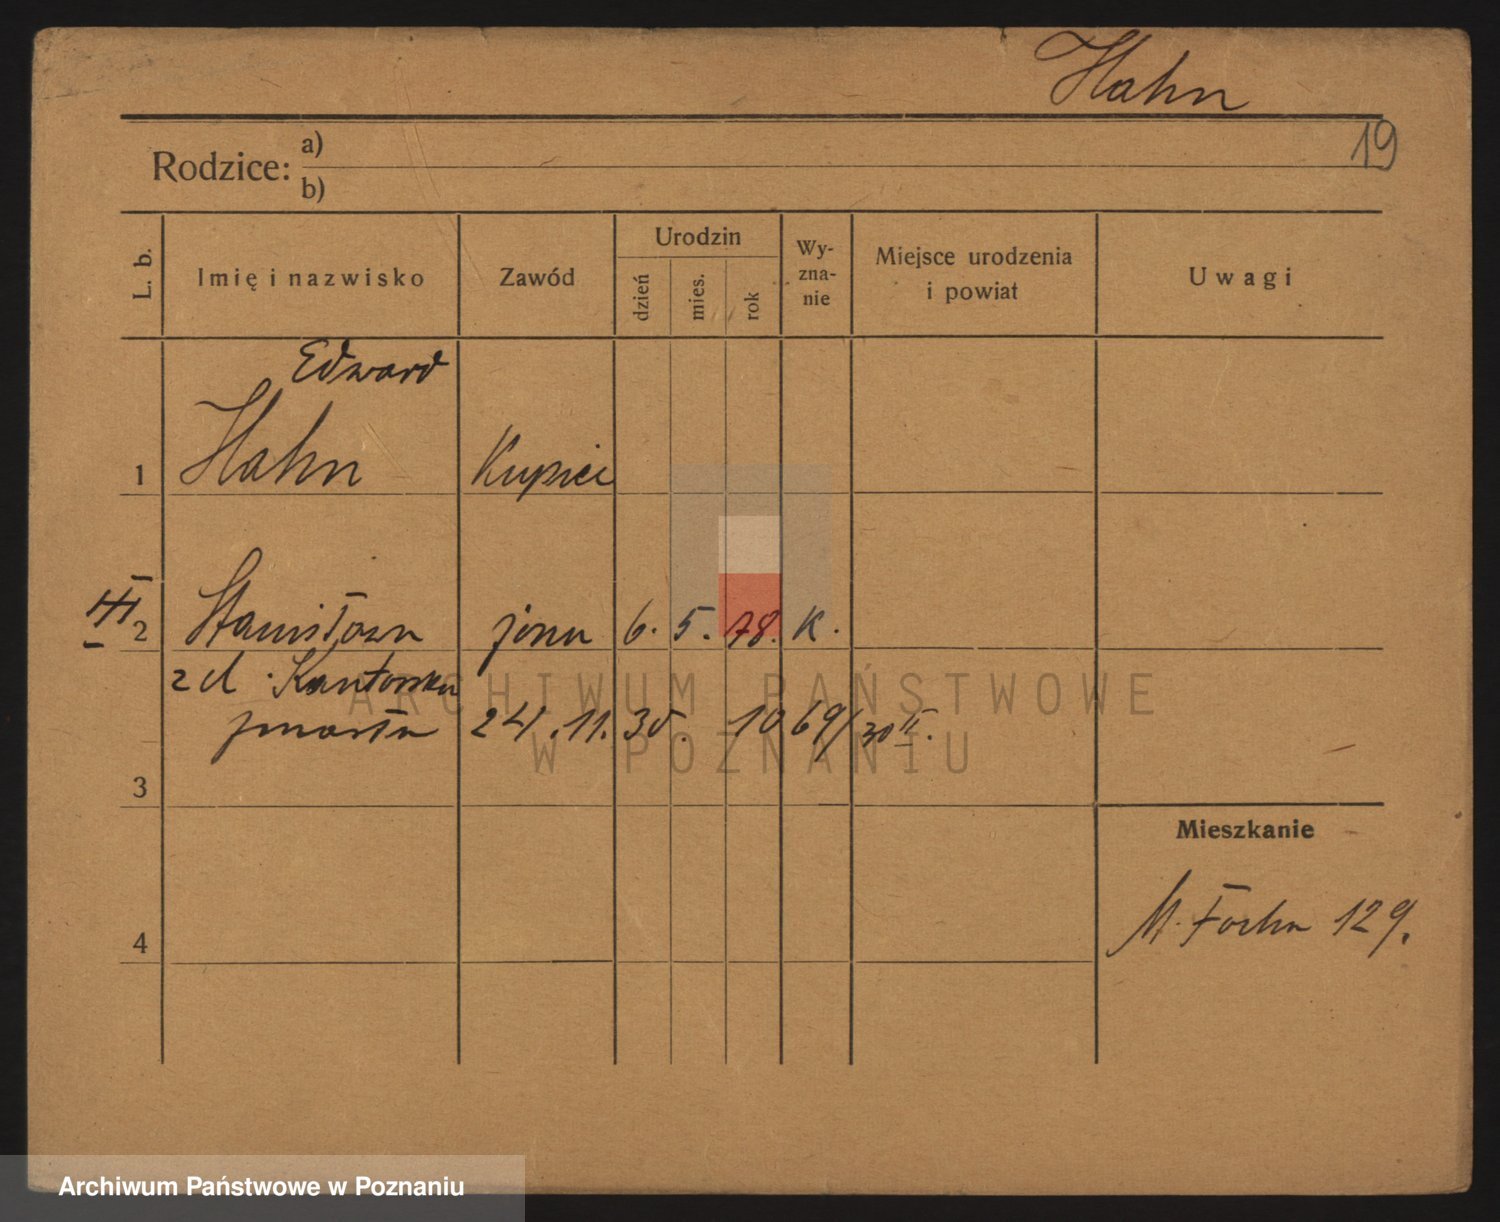 Hahn
19
Rodzice: a)
b)
L. b.
Imię i nazwisko
Zawód
Urodzin
dzień
mies.
rok
Wy-
zna-
nie
Miejsce urodzenia
i powiat
Uwagi
Edward
1 Hahn Kupiec
2 Stanisława żona 6. 5. 78. K.
z d. Kantorska
zmarła 24.11.30. 1069/30 II.
3
Mieszkanie
M. Focha 129.
4
ARCHIWUM PAŃSTWOWE
W POZNANIU
Archiwum Państwowe w Poznaniu